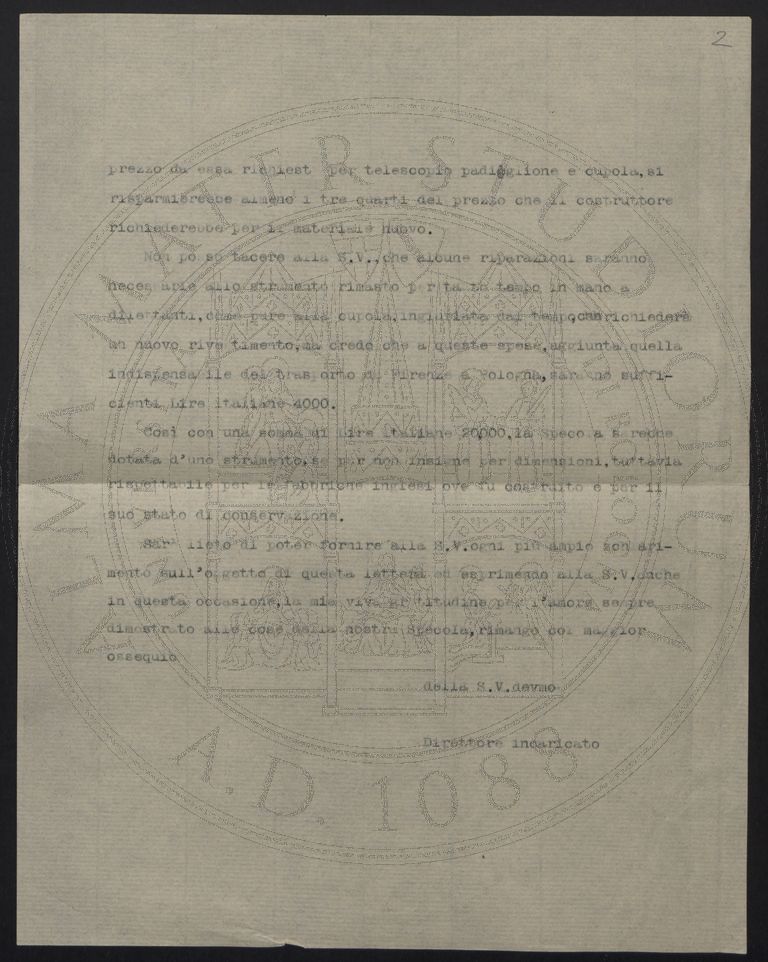 2
prezzo da essa richiest per telescopio padiglione e cupola,si
risparmierebbe almeno i tre quarti del prezzo che il costruttore
richiederebbe per il materiale nuovo.
Non posso tacere alla S.V.,che alcune riparazioni saranno
necessarie allo strumento rimasto per tanto tempo in mano a
dilettanti,come pure alla cupola,ingiuriata dal tempo,che richiederà
un nuovo rivestimento,ma credo che a queste spese,aggiunta quella
indispensabile del trasporto da Firenze a Bologna,saranno suffi-
cienti Lire italiane 4000.
Così con una somma di Lire italiane 20000,la Specola sarebbe
dotata d'uno strumento,se pur non insigne per dimensioni,tuttavia
rispettabile per le fabbriche inglesi ove fu costruito e per il
suo stato di conservazione.
Sarò lieto di poter fornire alla S.V.ogni più ampio schiari-
mento sull'oggetto di questa lettera ed esprimendo alla S.V.anche
in questa occasione,la mia viva gratitudine per l'amore sempre
dimostrato alle cose della nostra Specola,rimango col maggior
ossequio
della S.V.devmo
Direttore incaricato
ALMA MATER STUDIORUM
A.D. 1088